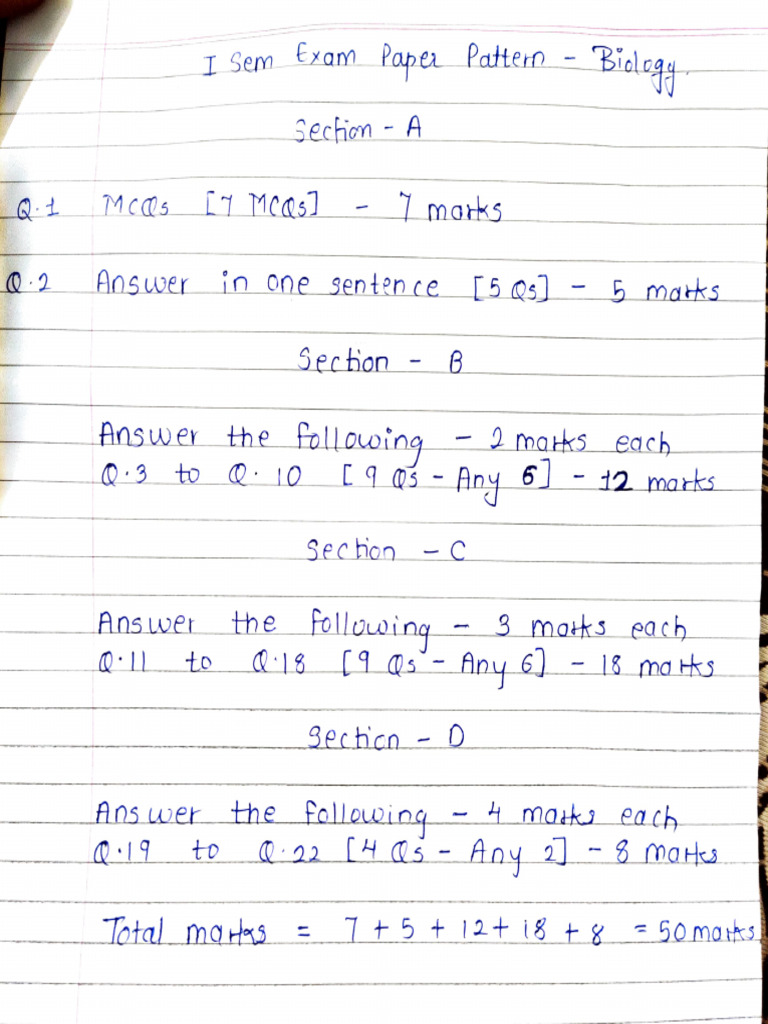 I Sem Exam Paper Pattern - Biology.
Section - A
Q.1 MCQs [7 MCQs] - 7 marks
Q.2 Answer in one sentence [5 Qs] - 5 marks
Section - B
Answer the following - 2 marks each
Q.3 to Q.10 [9 Qs - Any 6] - 12 marks
Section - C
Answer the following - 3 marks each
Q.11 to Q.18 [9 Qs - Any 6] - 18 marks
Section - D
Answer the following - 4 marks each
Q.19 to Q.22 [4 Qs - Any 2] - 8 marks
Total marks = 7 + 5 + 12 + 18 + 8 = 50 marks